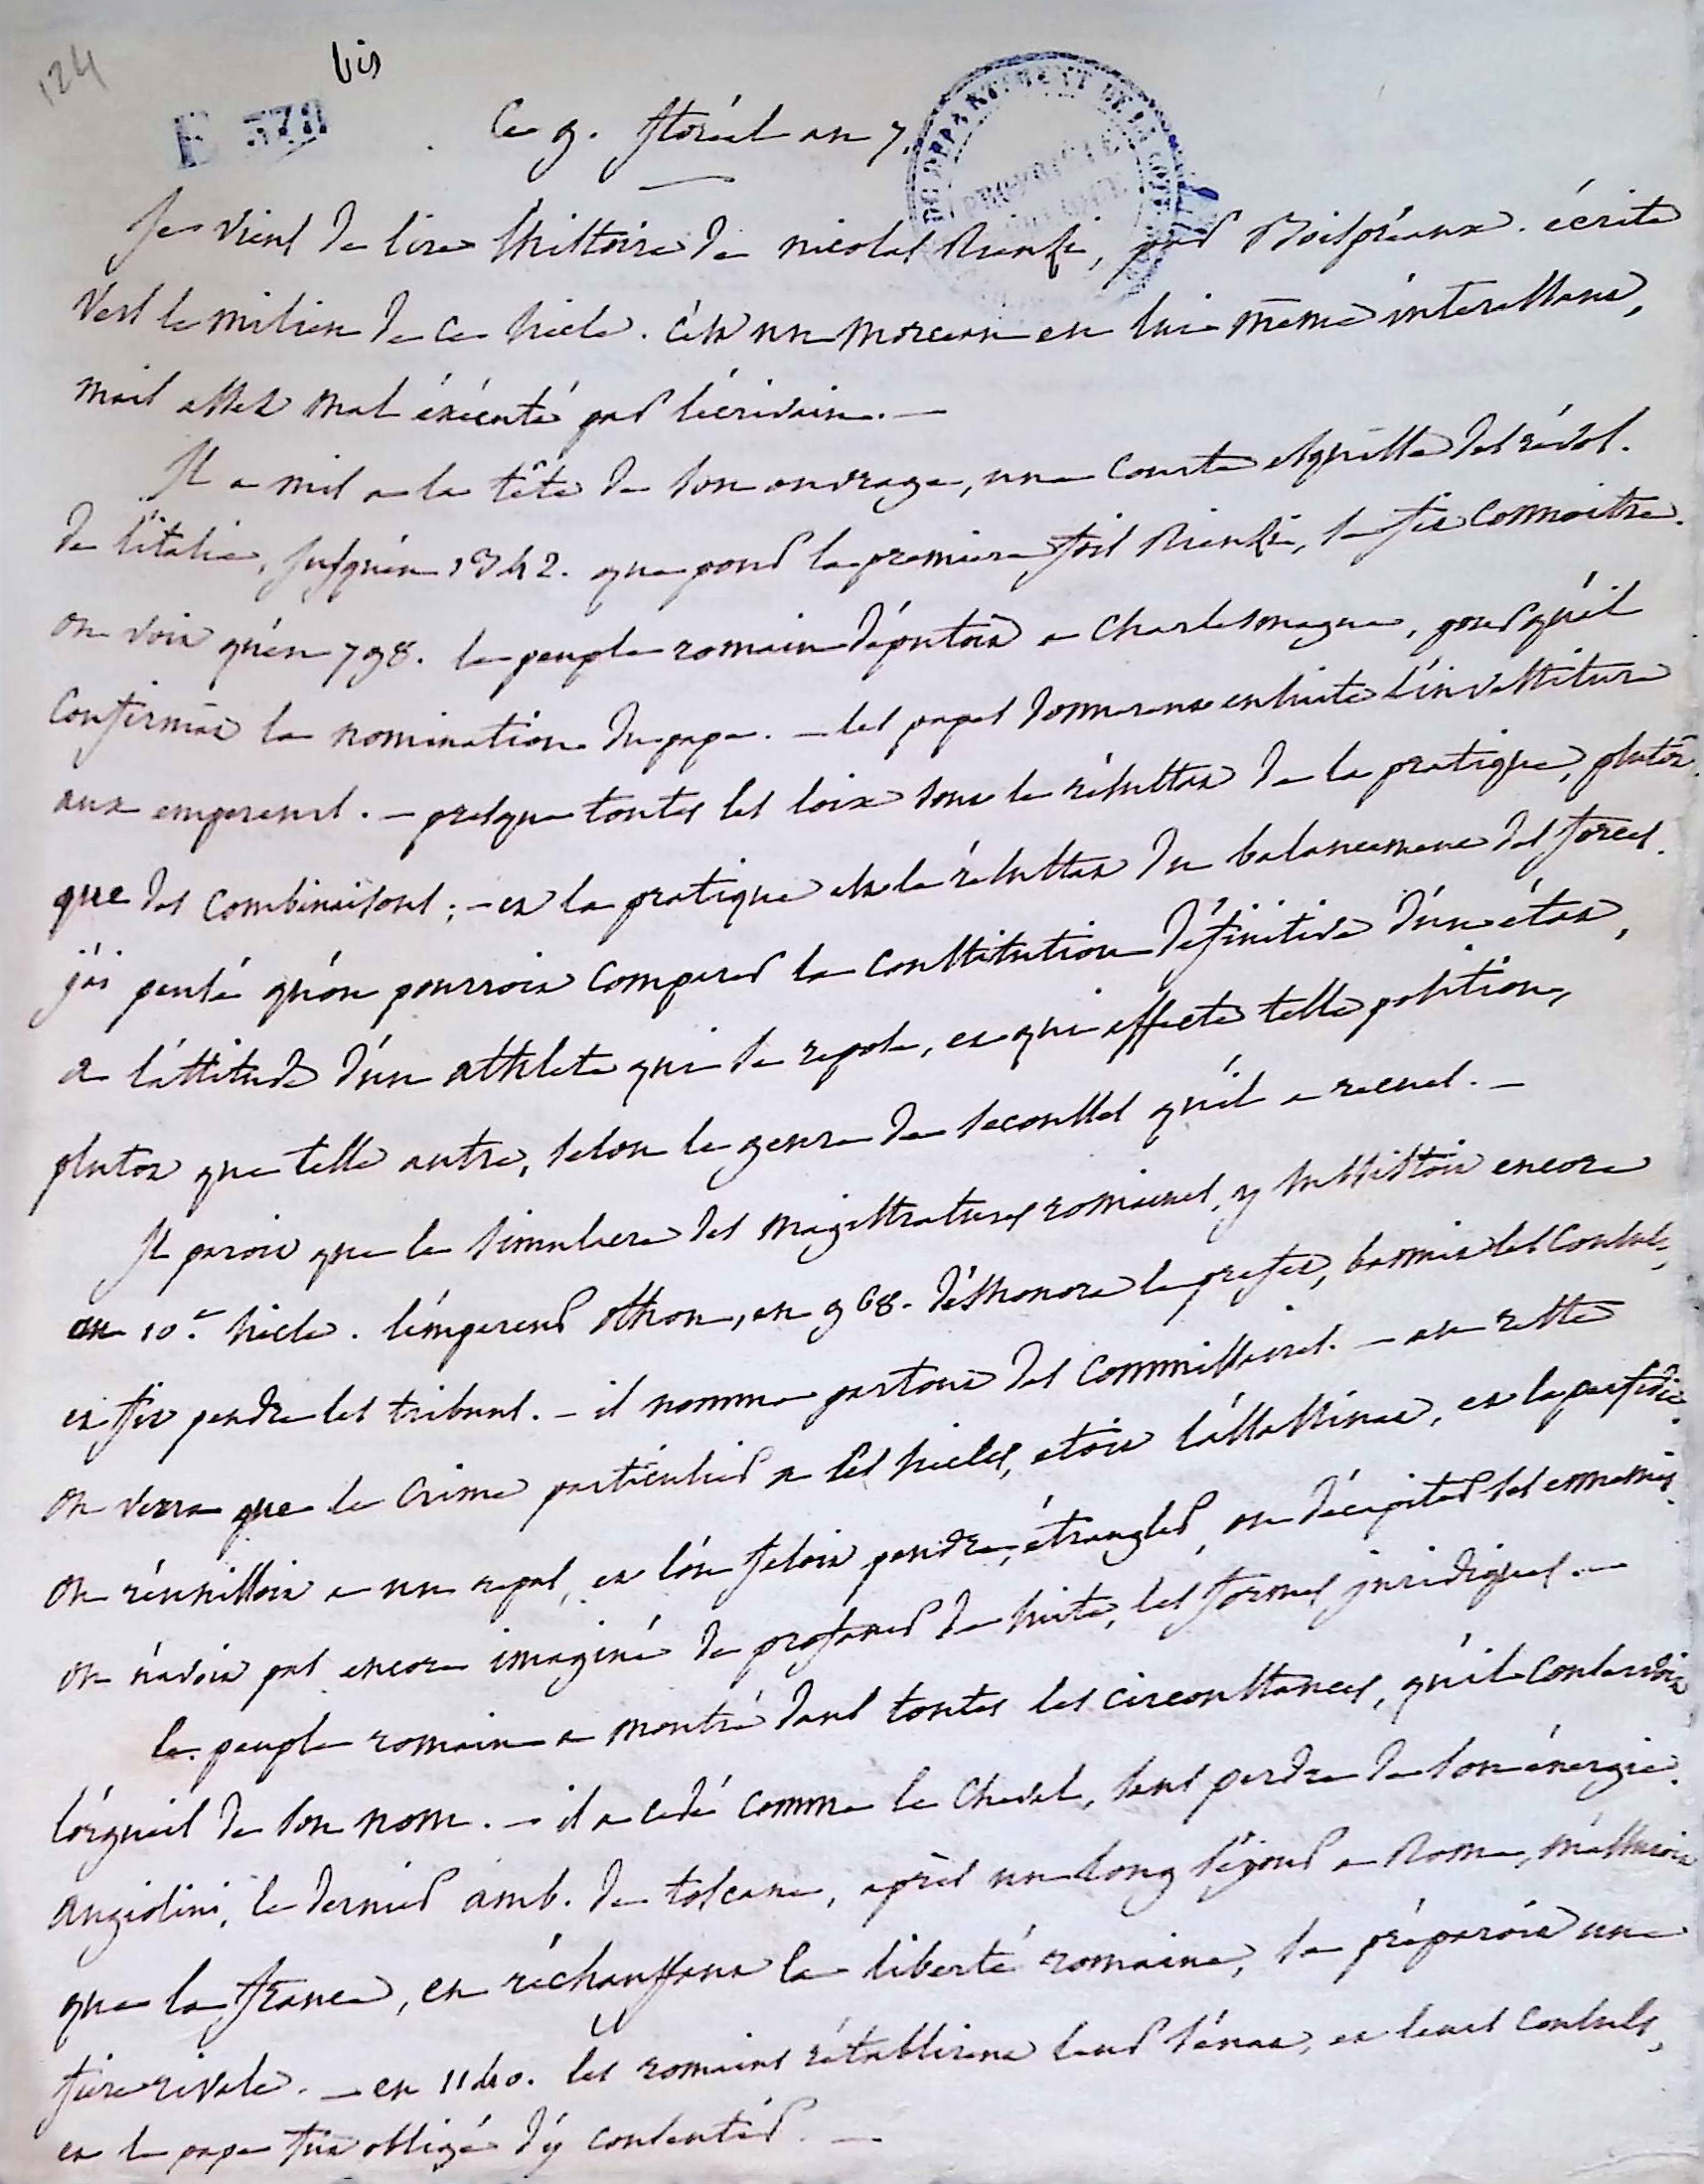 124
bis
E 378
Ce 9. floréal an 7.
DU DEPARTEMENT DE LA COTE
PROPRIÉTÉ PUBLIQUE
Je viens de lire l'histoire de nicolas Rienzi, par Boispréaux. écrite
vers le milieu de ce siècle. c'est un morceau en lui même interessant,
mais assez mal éxécuté par l'écrivain. —
Il a mis a la tête de son ouvrage, une courte esquisse des révol.
de l'italie, jusqu'en 1342. que pour la premiere fois Rienzi, se fit connoitre.
on voit qu'en 798. le peuple romain députoit a Charlesmagne, pour qu'il
confirmat la nomination du pape. — les papes donnerent ensuite l'investiture
aux empereurs. — presque toutes les loix sont le résultat de la pratique, plutôt
que des combinaisons; — et la pratique est le résultat du balancement des forces.
j'ai pensé qu'on pourroit comparer la constitution définitive d'un état,
a l'attitude d'un athlete qui se repose, et qui affecte telle position,
plutot que telle autre, selon le genre de secousses qu'il a recues. —
Il paroit que le simulacre des magistratures romaines, y subsistoit encore
au 10.e siècle. l'empereur othon, en 968. déshonora le prefet, bannit les consuls,
et fit pendre les tribuns. — il nomma partout des commissaires. — au reste
on verra que le crime particulier a ces siècles, etoit l'assassinat, et la perfidie.
on réunissoit a un repas, et l'on faisoit pendre, étrangler, ou décapiter ses ennemis.
on n'avoit pas encore imaginé de profaner de suite, les formes juridiques. —
le peuple romain a montré dans toutes les circonstances, qu'il conservoit
l'orgueil de son nom. — il a cédé comme le cheval, sans perdre de son énergie.
angiolini, le dernier amb. de toscane, après un long séjour a Rome, m'assuroit
que la france, en réchauffant la liberté romaine, se préparoit une
fiere rivale. — en 1140. les romains rétablirent leur sénat, et leurs consuls,
et le pape fut obligé d'y consentir. —